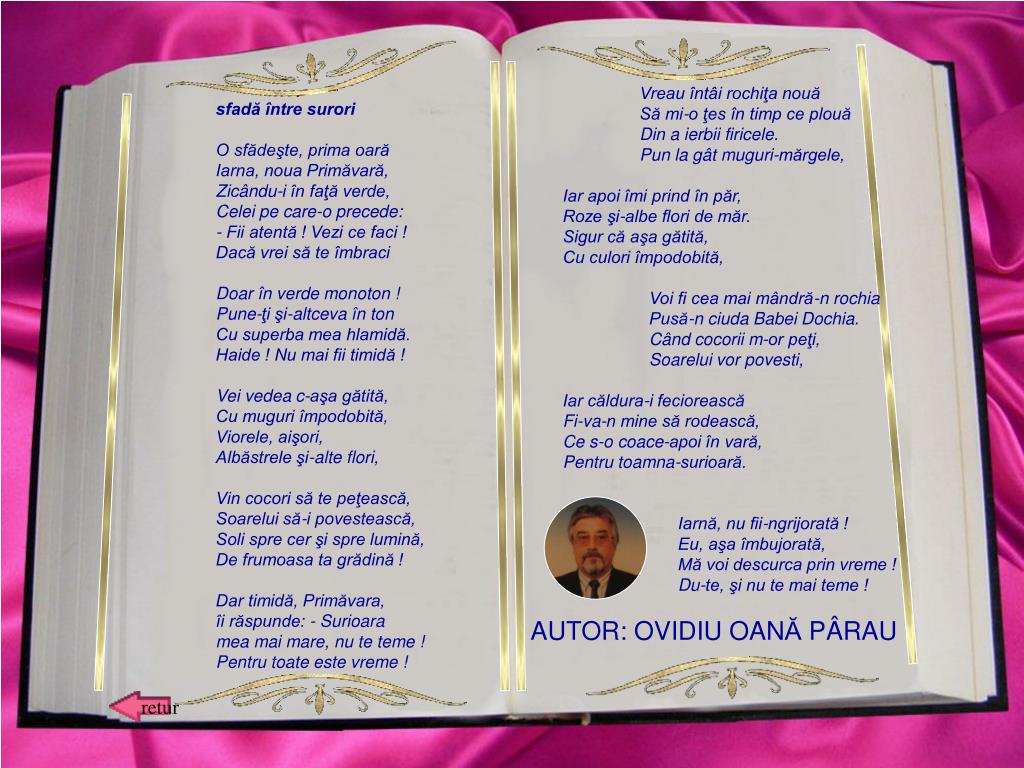 sfadă între surori
O sfădeşte, prima oară
Iarna, noua Primăvară,
Zicându-i în faţă verde,
Celei pe care-o precede:
- Fii atentă ! Vezi ce faci !
Dacă vrei să te îmbraci
Doar în verde monoton !
Pune-ţi şi-altceva în ton
Cu superba mea hlamidă.
Haide ! Nu mai fii timidă !
Vei vedea c-aşa gătită,
Cu muguri împodobită,
Viorele, aişori,
Albăstrele şi-alte flori,
Vin cocori să te peţească,
Soarelui să-i povestească,
Soli spre cer şi spre lumină,
De frumoasa ta grădină !
Dar timidă, Primăvara,
îi răspunde: - Surioara
mea mai mare, nu te teme !
Pentru toate este vreme !
Vreau întâi rochiţa nouă
Să mi-o ţes în timp ce plouă
Din a ierbii firicele.
Pun la gât muguri-mărgele,
Iar apoi îmi prind în păr,
Roze şi-albe flori de măr.
Sigur că aşa gătită,
Cu culori împodobită,
Voi fi cea mai mândră-n rochia
Pusă-n ciuda Babei Dochia.
Când cocorii m-or peţi,
Soarelui vor povesti,
Iar căldura-i feciorească
Fi-va-n mine să rodească,
Ce s-o coace-apoi în vară,
Pentru toamna-surioară.
Iarnă, nu fii-ngrijorată !
Eu, aşa îmbujorată,
Mă voi descurca prin vreme !
Du-te, şi nu te mai teme !
AUTOR: OVIDIU OANĂ PÂRAU
retur